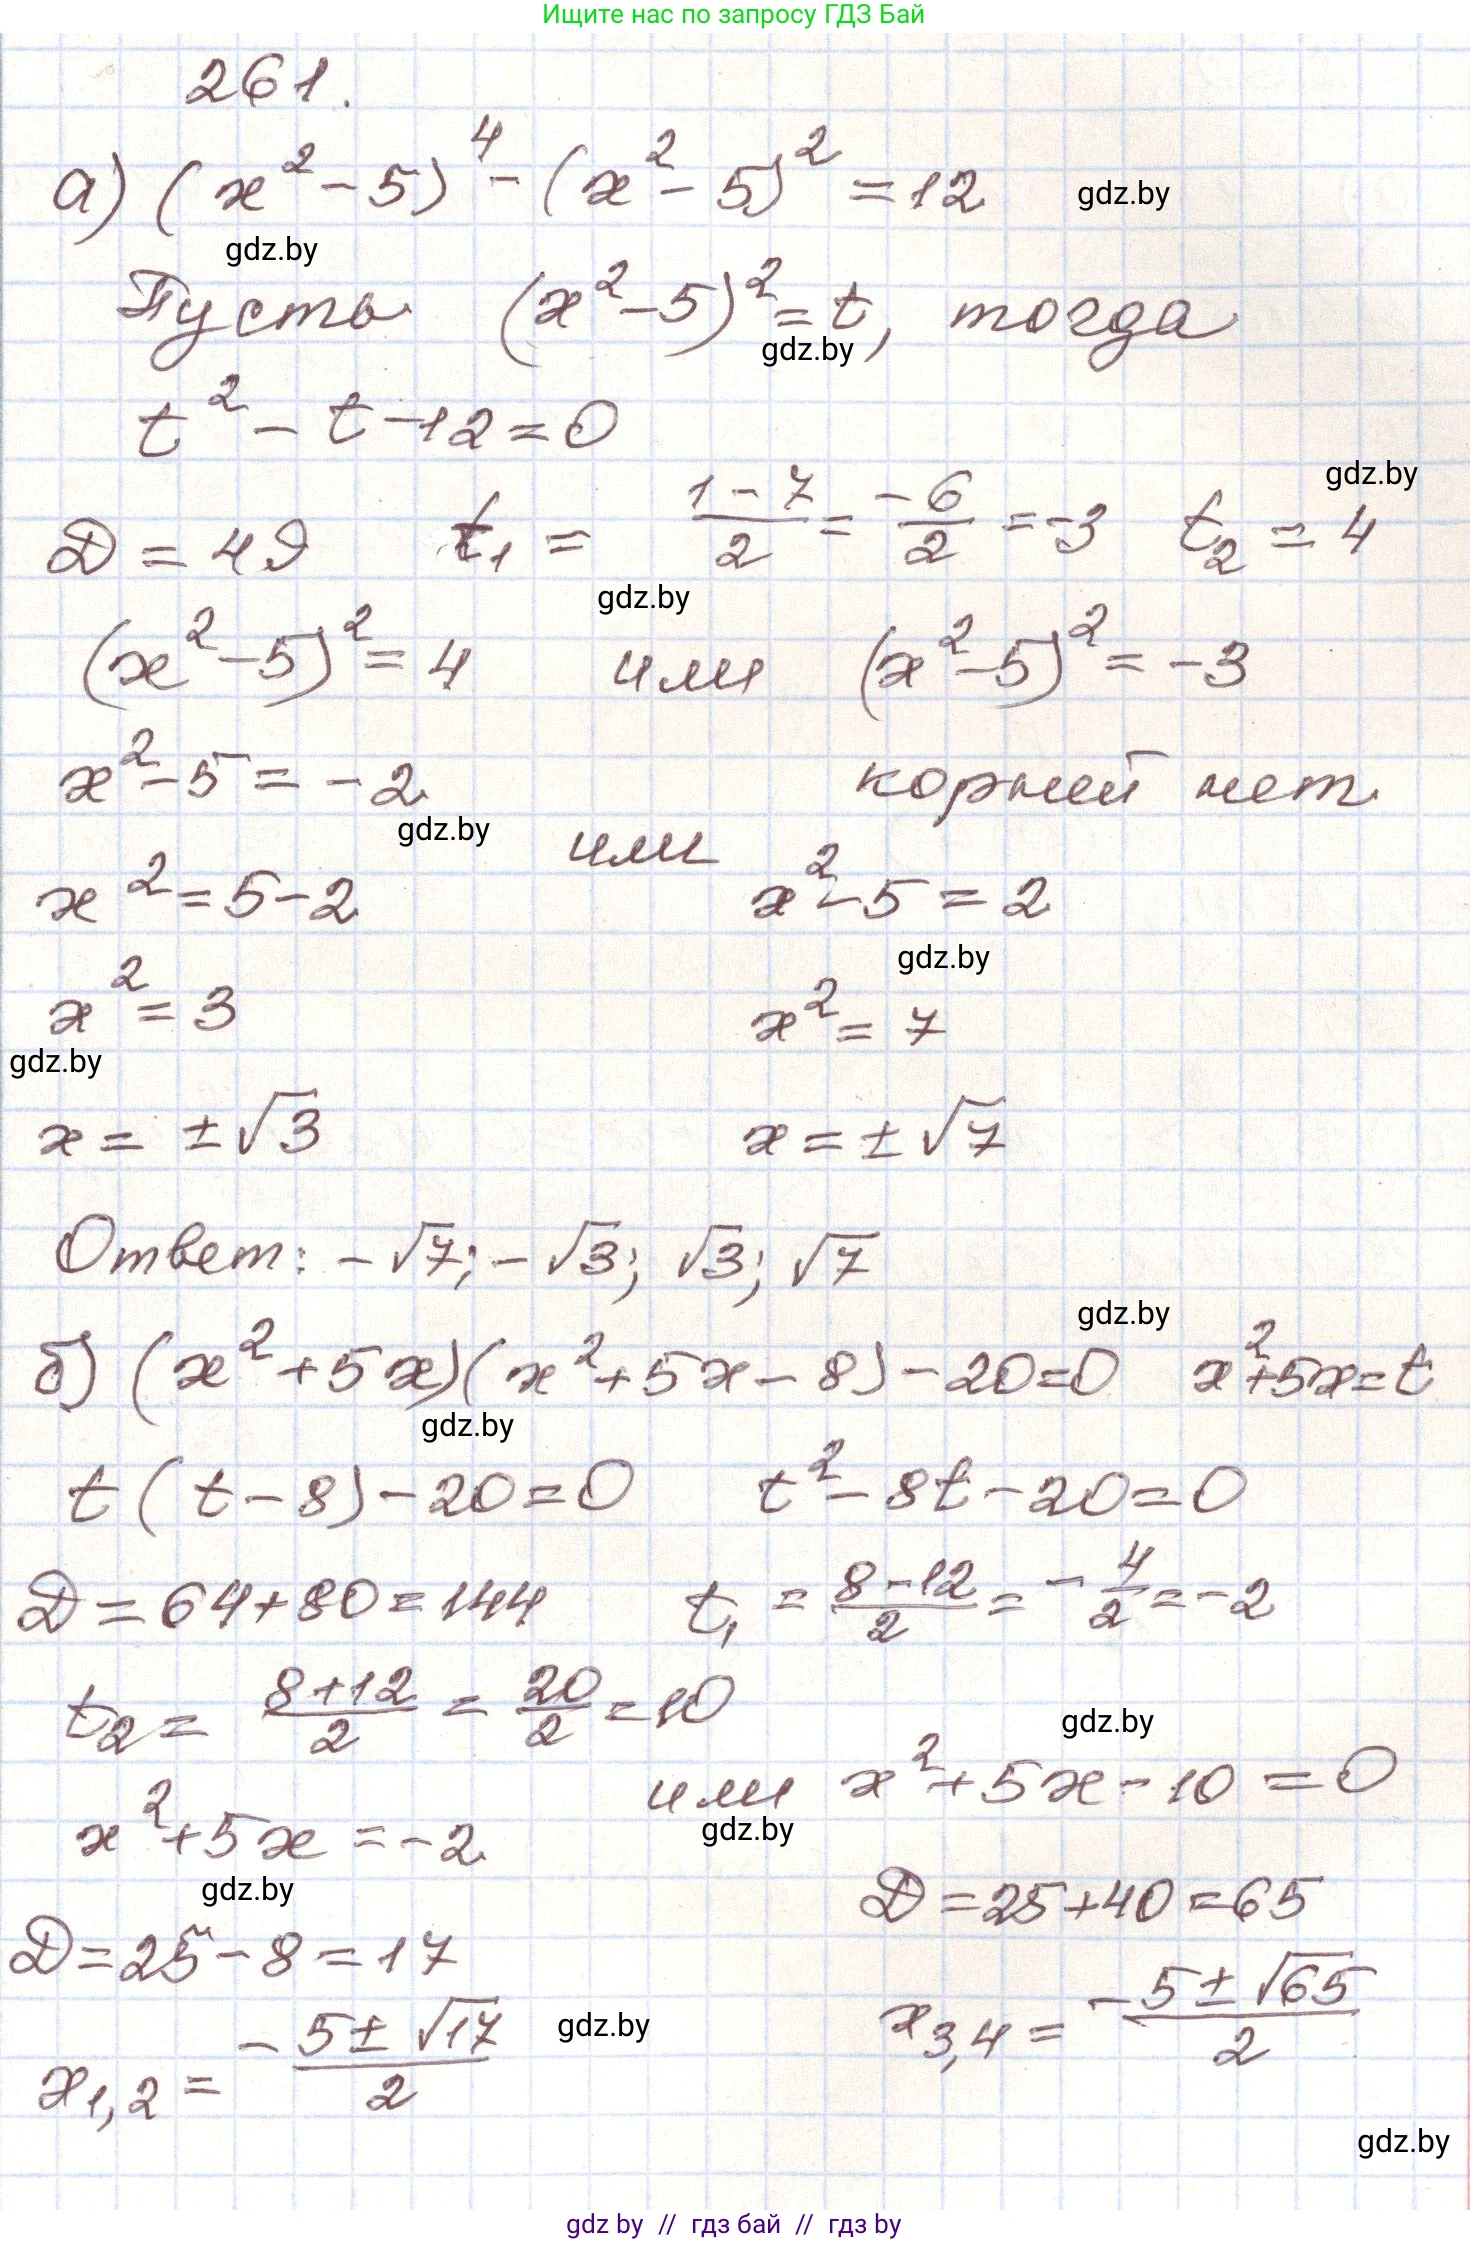 Ищите нас по запросу ГДЗ Бай
261.
а) (x² - 5)⁴ - (x² - 5)² = 12
gdz.by
gdz.by
Пусть (x² - 5)² = t, тогда
gdz.by
t² - t - 12 = 0
gdz.by
D = 49 t₁ = (1 - 7)/2 = -6/2 = -3 t₂ = 4
gdz.by
(x² - 5)² = 4 или (x² - 5)² = -3
x² - 5 = -2 корней нет
gdz.by
или
x² = 5 - 2 x² - 5 = 2
gdz.by
x² = 3 x² = 7
gdz.by
x = ±√3 x = ±√7
Ответ: -√7; -√3; √3; √7
gdz.by
б) (x² + 5x)(x² + 5x - 8) - 20 = 0 x² + 5x = t
gdz.by
t(t - 8) - 20 = 0 t² - 8t - 20 = 0
D = 64 + 80 = 144 t₁ = (8 - 12)/2 = -4/2 = -2
t₂ = (8 + 12)/2 = 20/2 = 10
gdz.by
x² + 5x = -2 или x² + 5x - 10 = 0
gdz.by
gdz.by
D = 25 - 8 = 17 D = 25 + 40 = 65
x₁,₂ = (-5 ± √17)/2 x₃,₄ = (-5 ± √65)/2
gdz.by
gdz.by
gdz by // гдз бай // гдз by